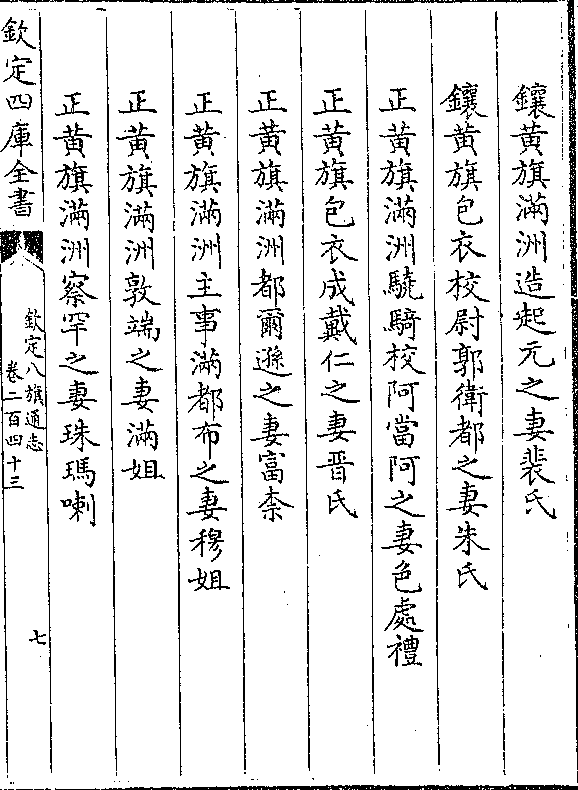 鑲黃旗滿洲造起元之妻裴氏
鑲黃旗包衣校尉郭衛都之妻朱氏
正黃旗滿洲驍騎校阿當阿之妻色處禮
正黃旗包衣成戴仁之妻晋氏
正黃旗滿洲都爾遜之妻富柰
正黃旗滿洲主事滿都布之妻穆姐
正黃旗滿洲敦端之妻滿姐
正黃旗滿洲察罕之妻珠瑪喇
欽定四庫全書
欽定八旗通志
卷二百四十三
七